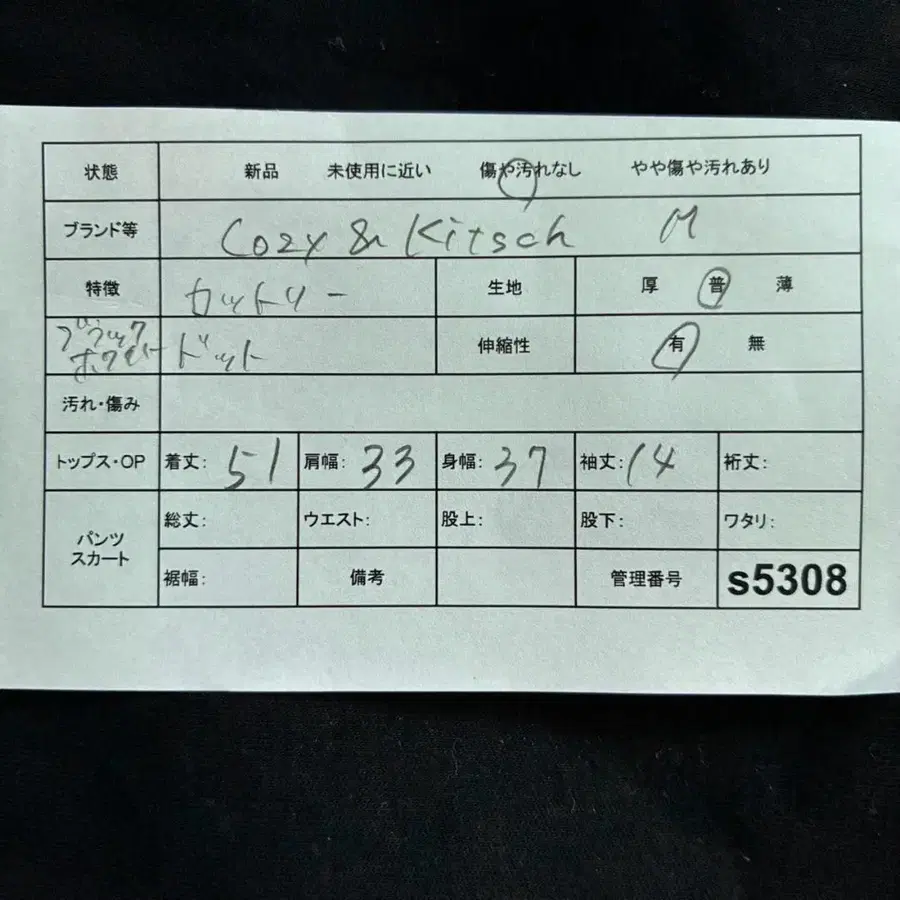 状態 新品 未使用に近い 傷や汚れなし やや傷や汚れあり
ブランド等 Cozy & Kitsch M
特徴 カットソー 生地 厚 普 薄
ブラック
ホワイト ドット 伸縮性 有 無
汚れ・傷み
トップス・OP 着丈: 51 肩幅: 33 身幅: 37 袖丈: 14 裄丈:
パンツ
スカート
総丈: ウエスト: 股上: 股下: ワタリ:
裾幅: 備考 管理番号 s5308